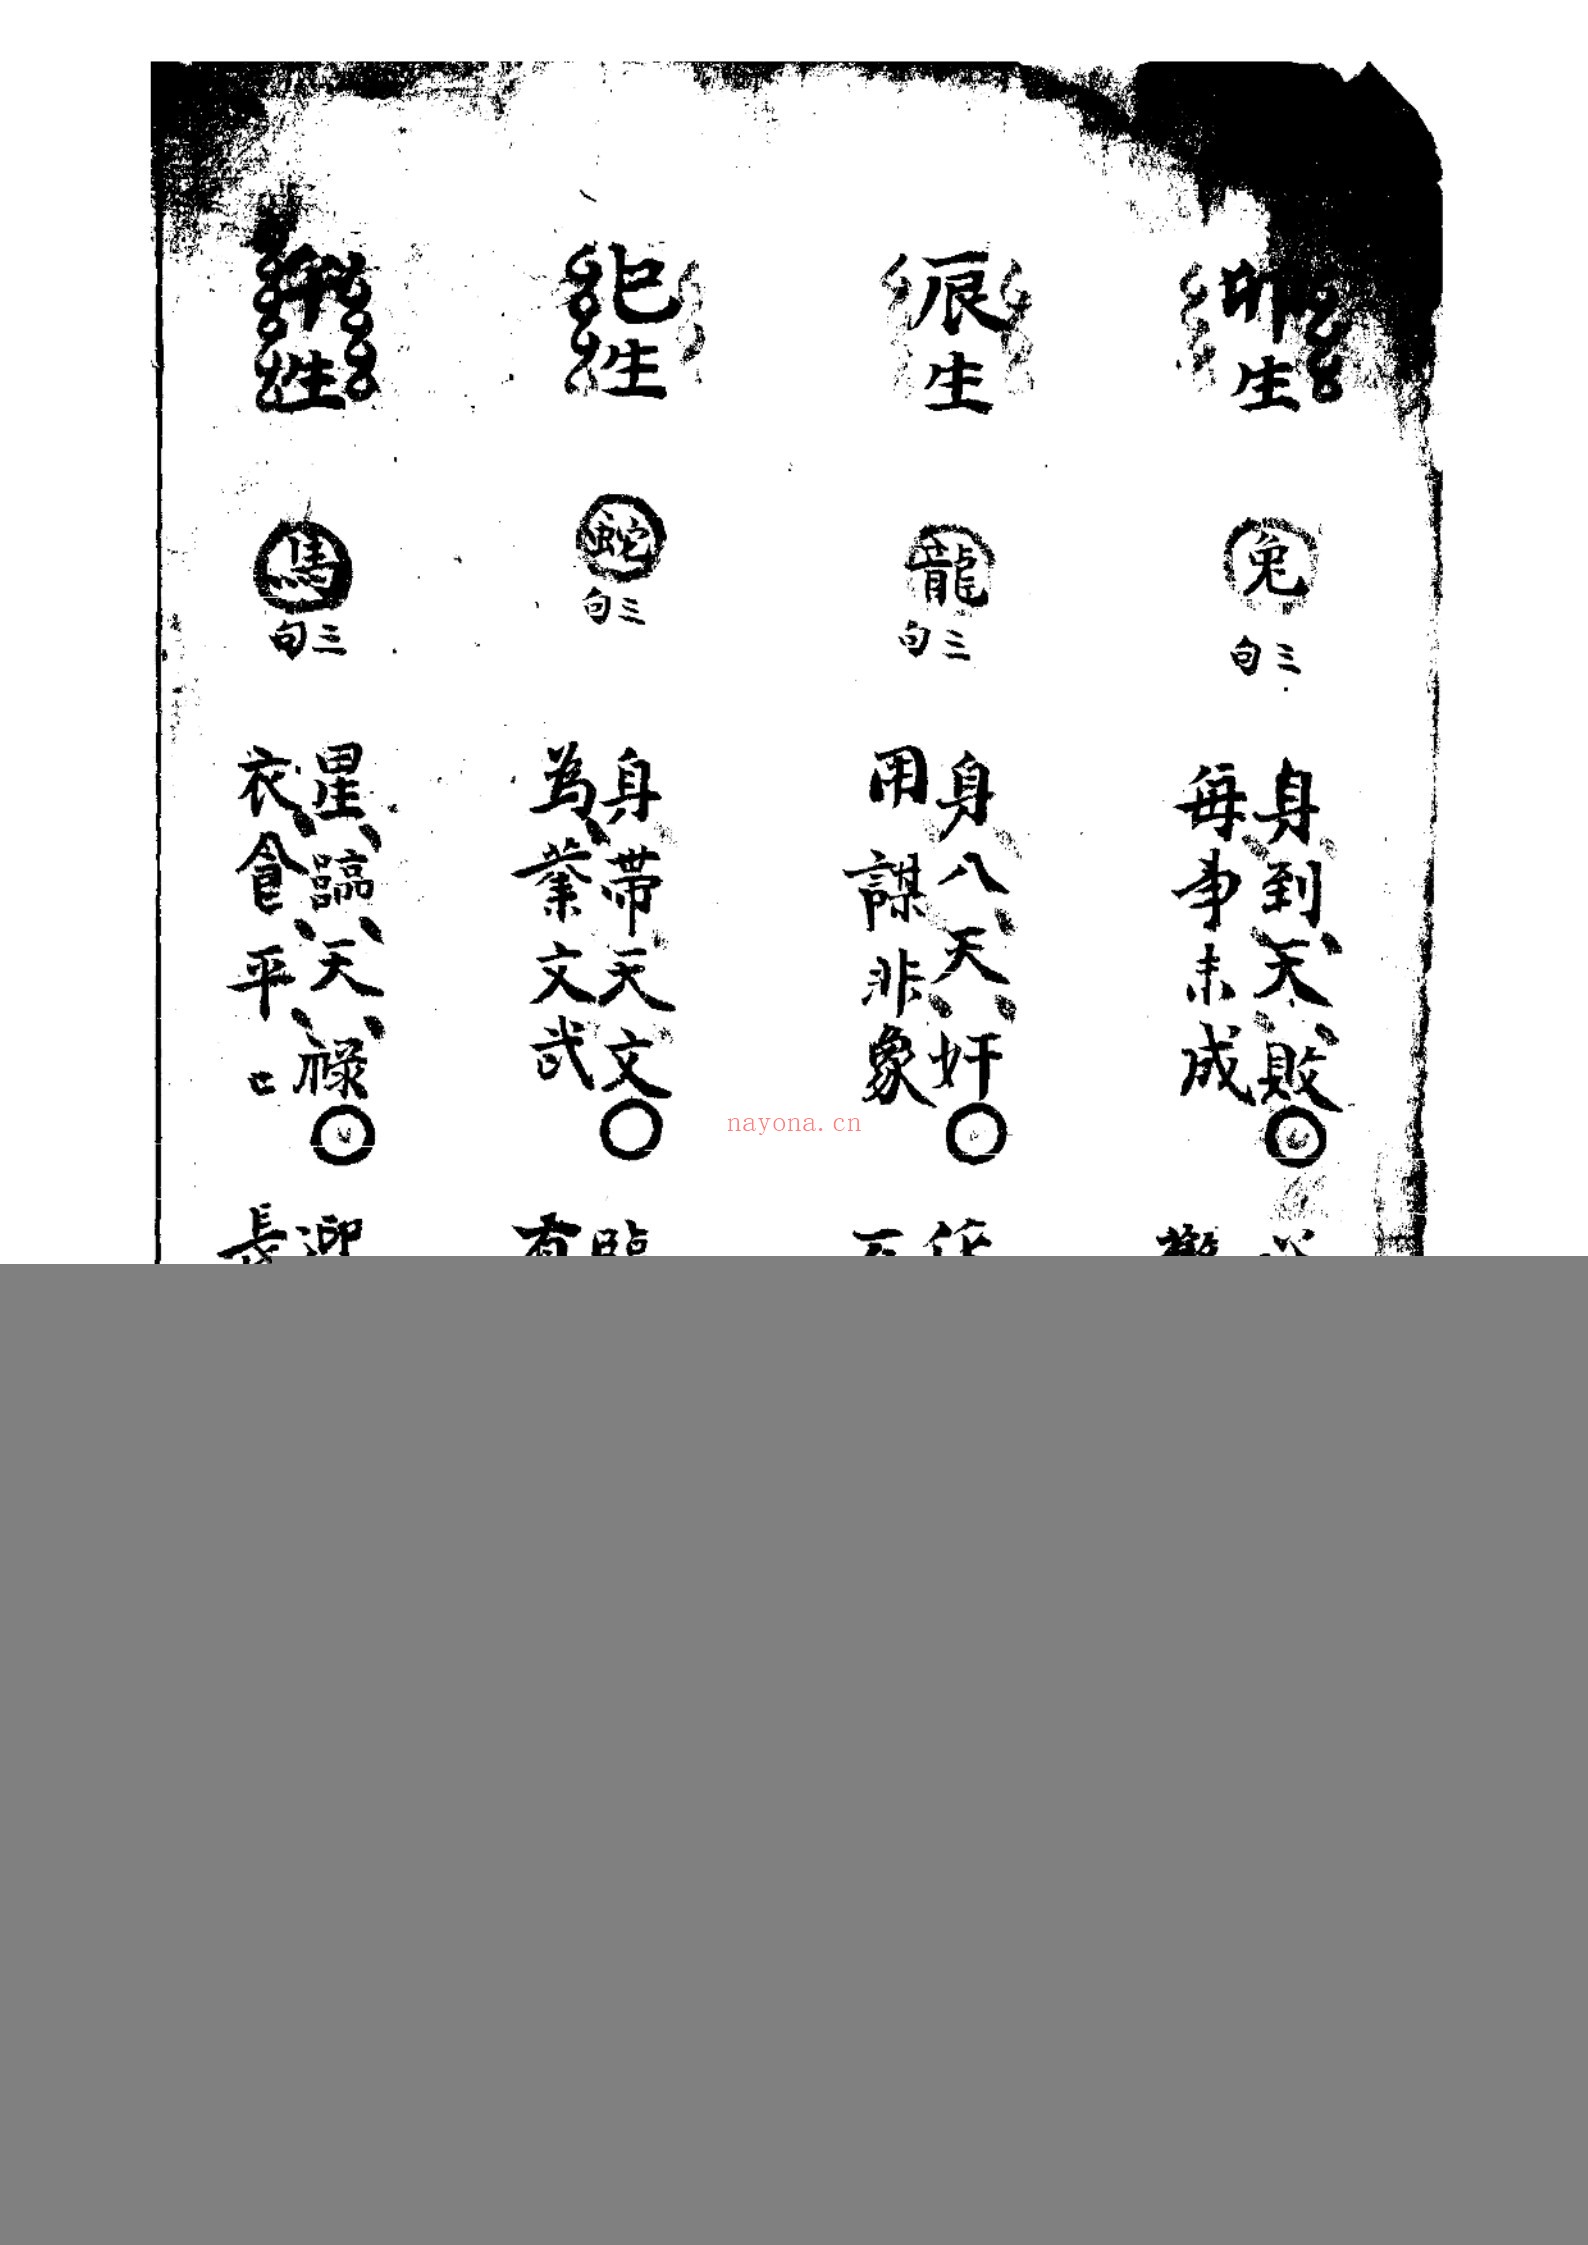 卯生
兔
三句
身到天敗
每事未成
辰生
龍
三句
身八天奸
用謀非象
巳生
蛇
三句
身帶天文
為業文武
臨
有
午生
馬
三句
星臨天祿
衣食平
迎
長
nayona.cn